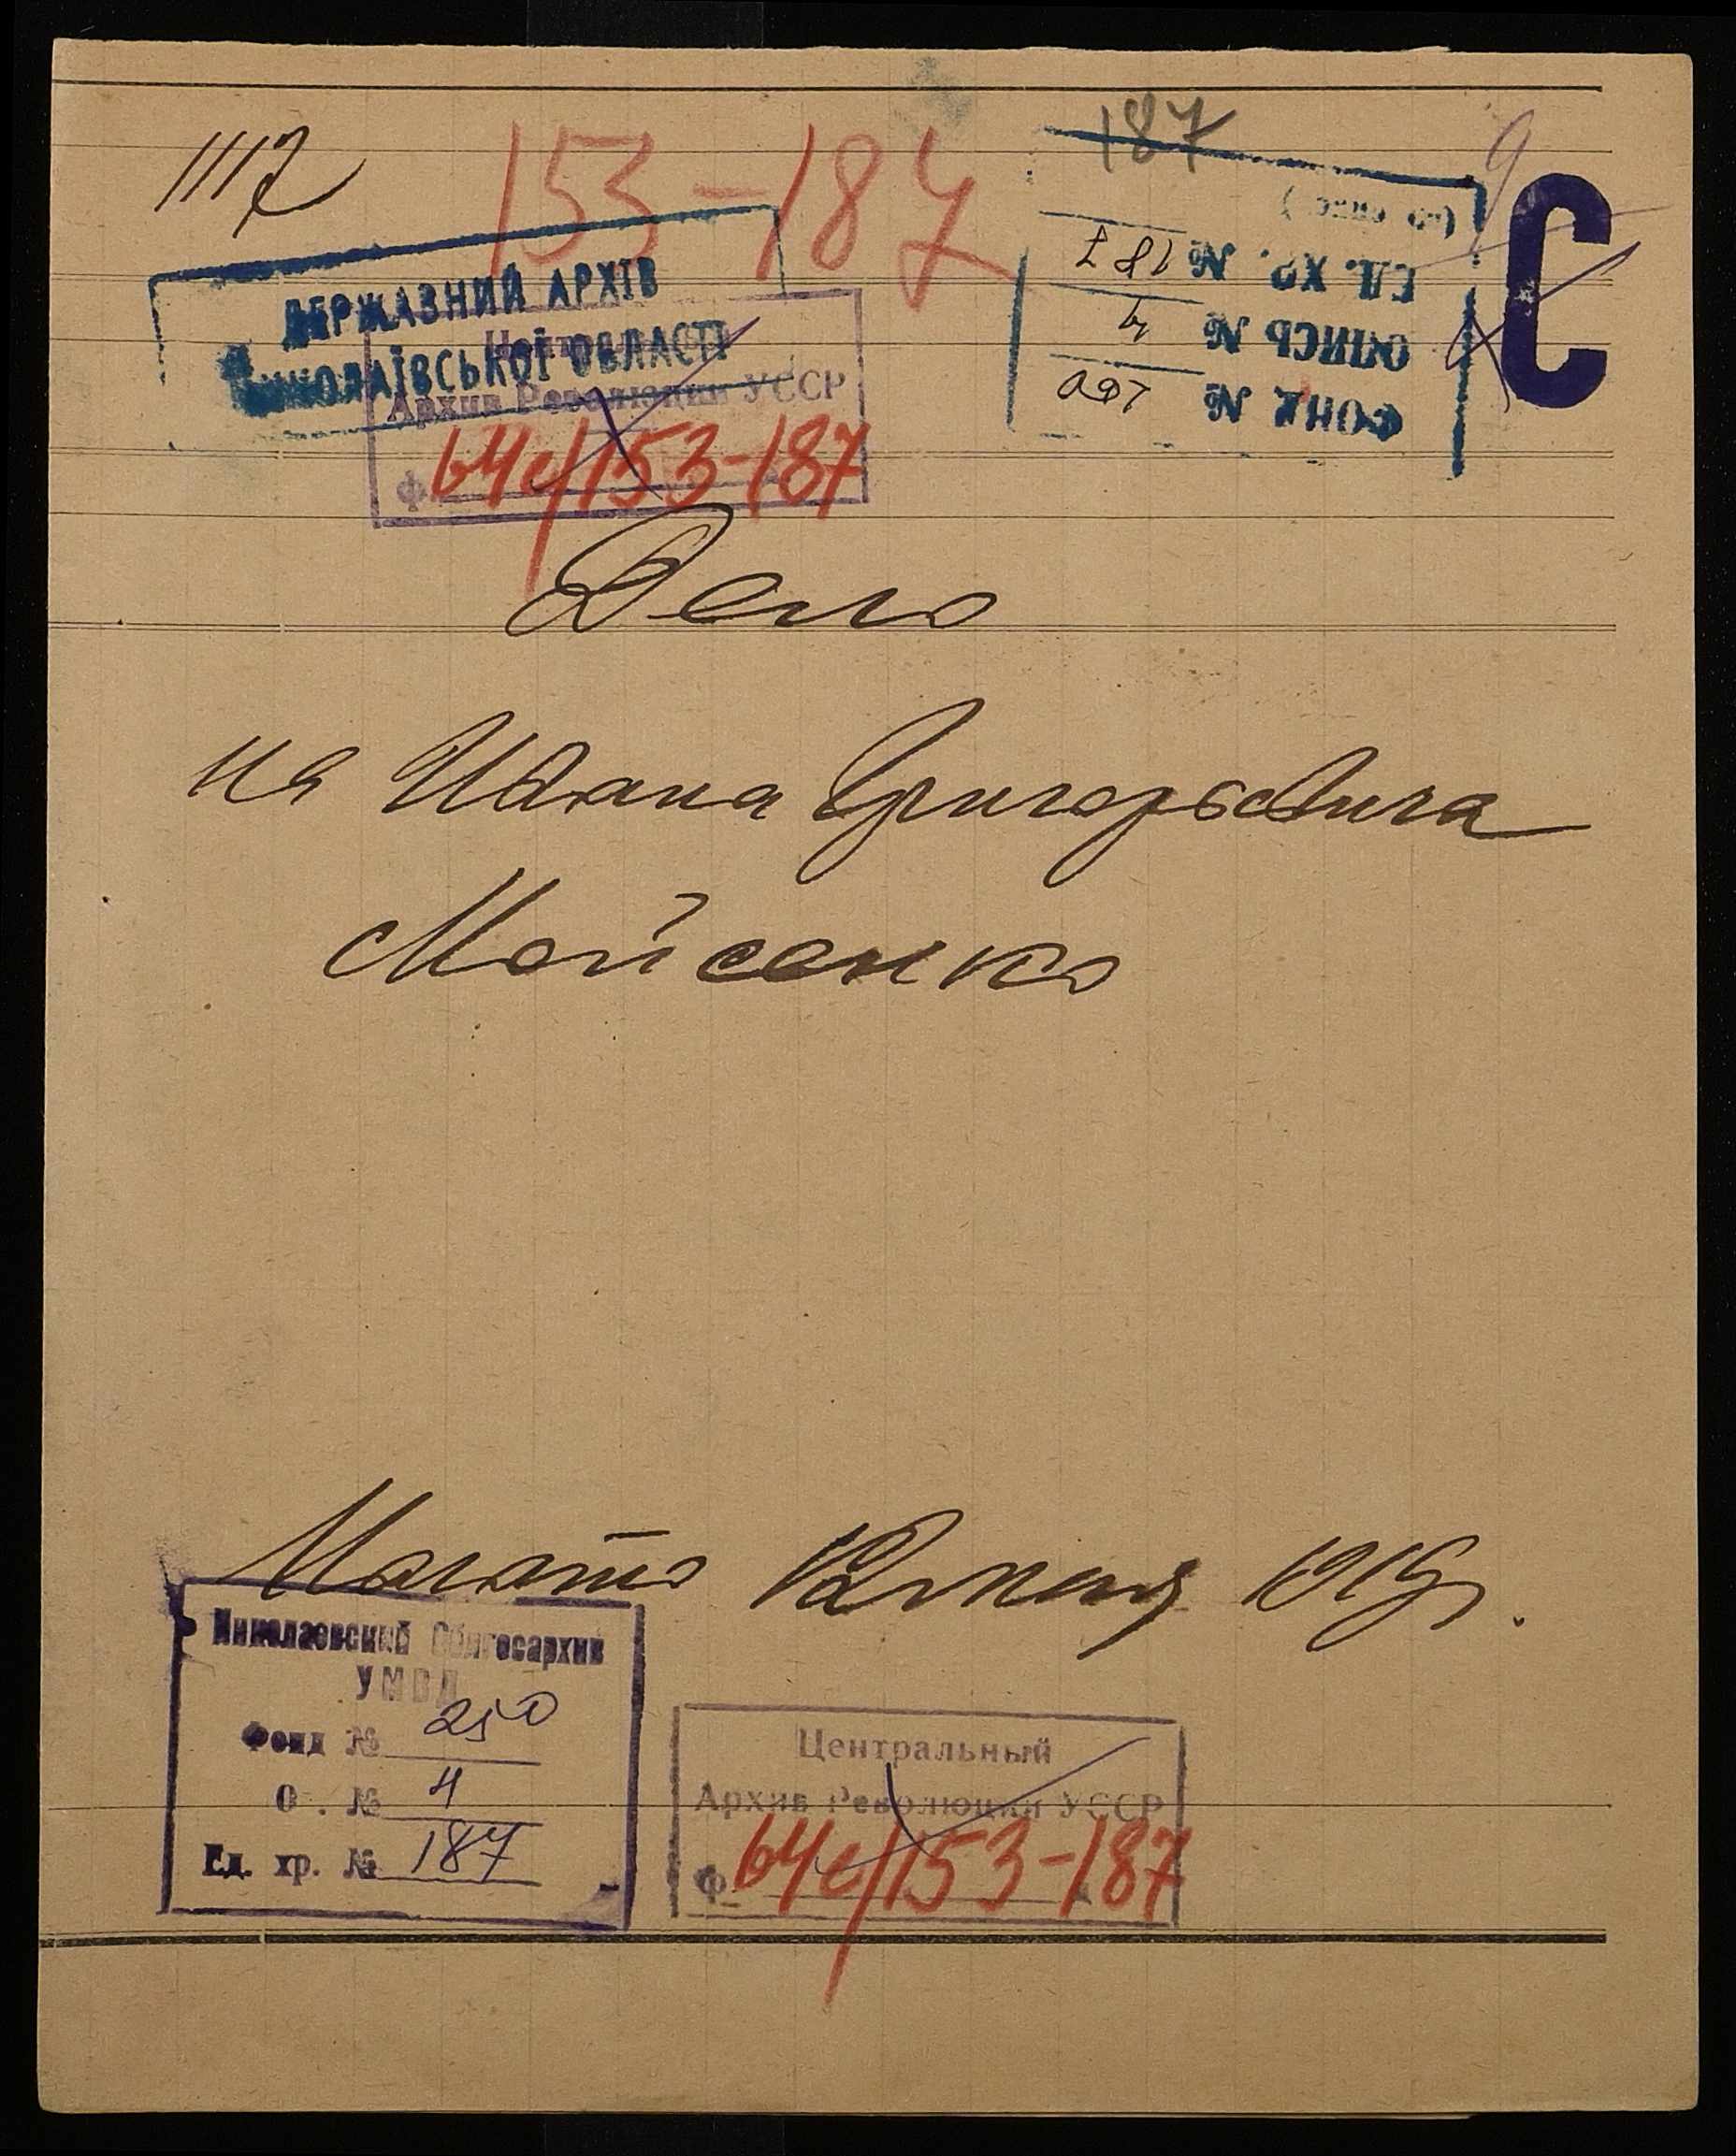 1117
153-187
187
С
ДЕРЖАВНИЙ АРХІВ
МИКОЛАЇВСЬКОЇ ОБЛАСТІ
Архив Революции УССР
Ф. 64с/153-187
ФОНД № 250
ОПИСЬ № 4
ЕД. ХР. № 187
Дело
на Ивана Григорьевича
Мойсенко
Начато 1919г.
Николаевский Облгосархив
УМВД
Фонд № 250
О . № 4
Ед. хр. № 187
Центральный
Архив Революции УССР
Ф. 64с/153-187